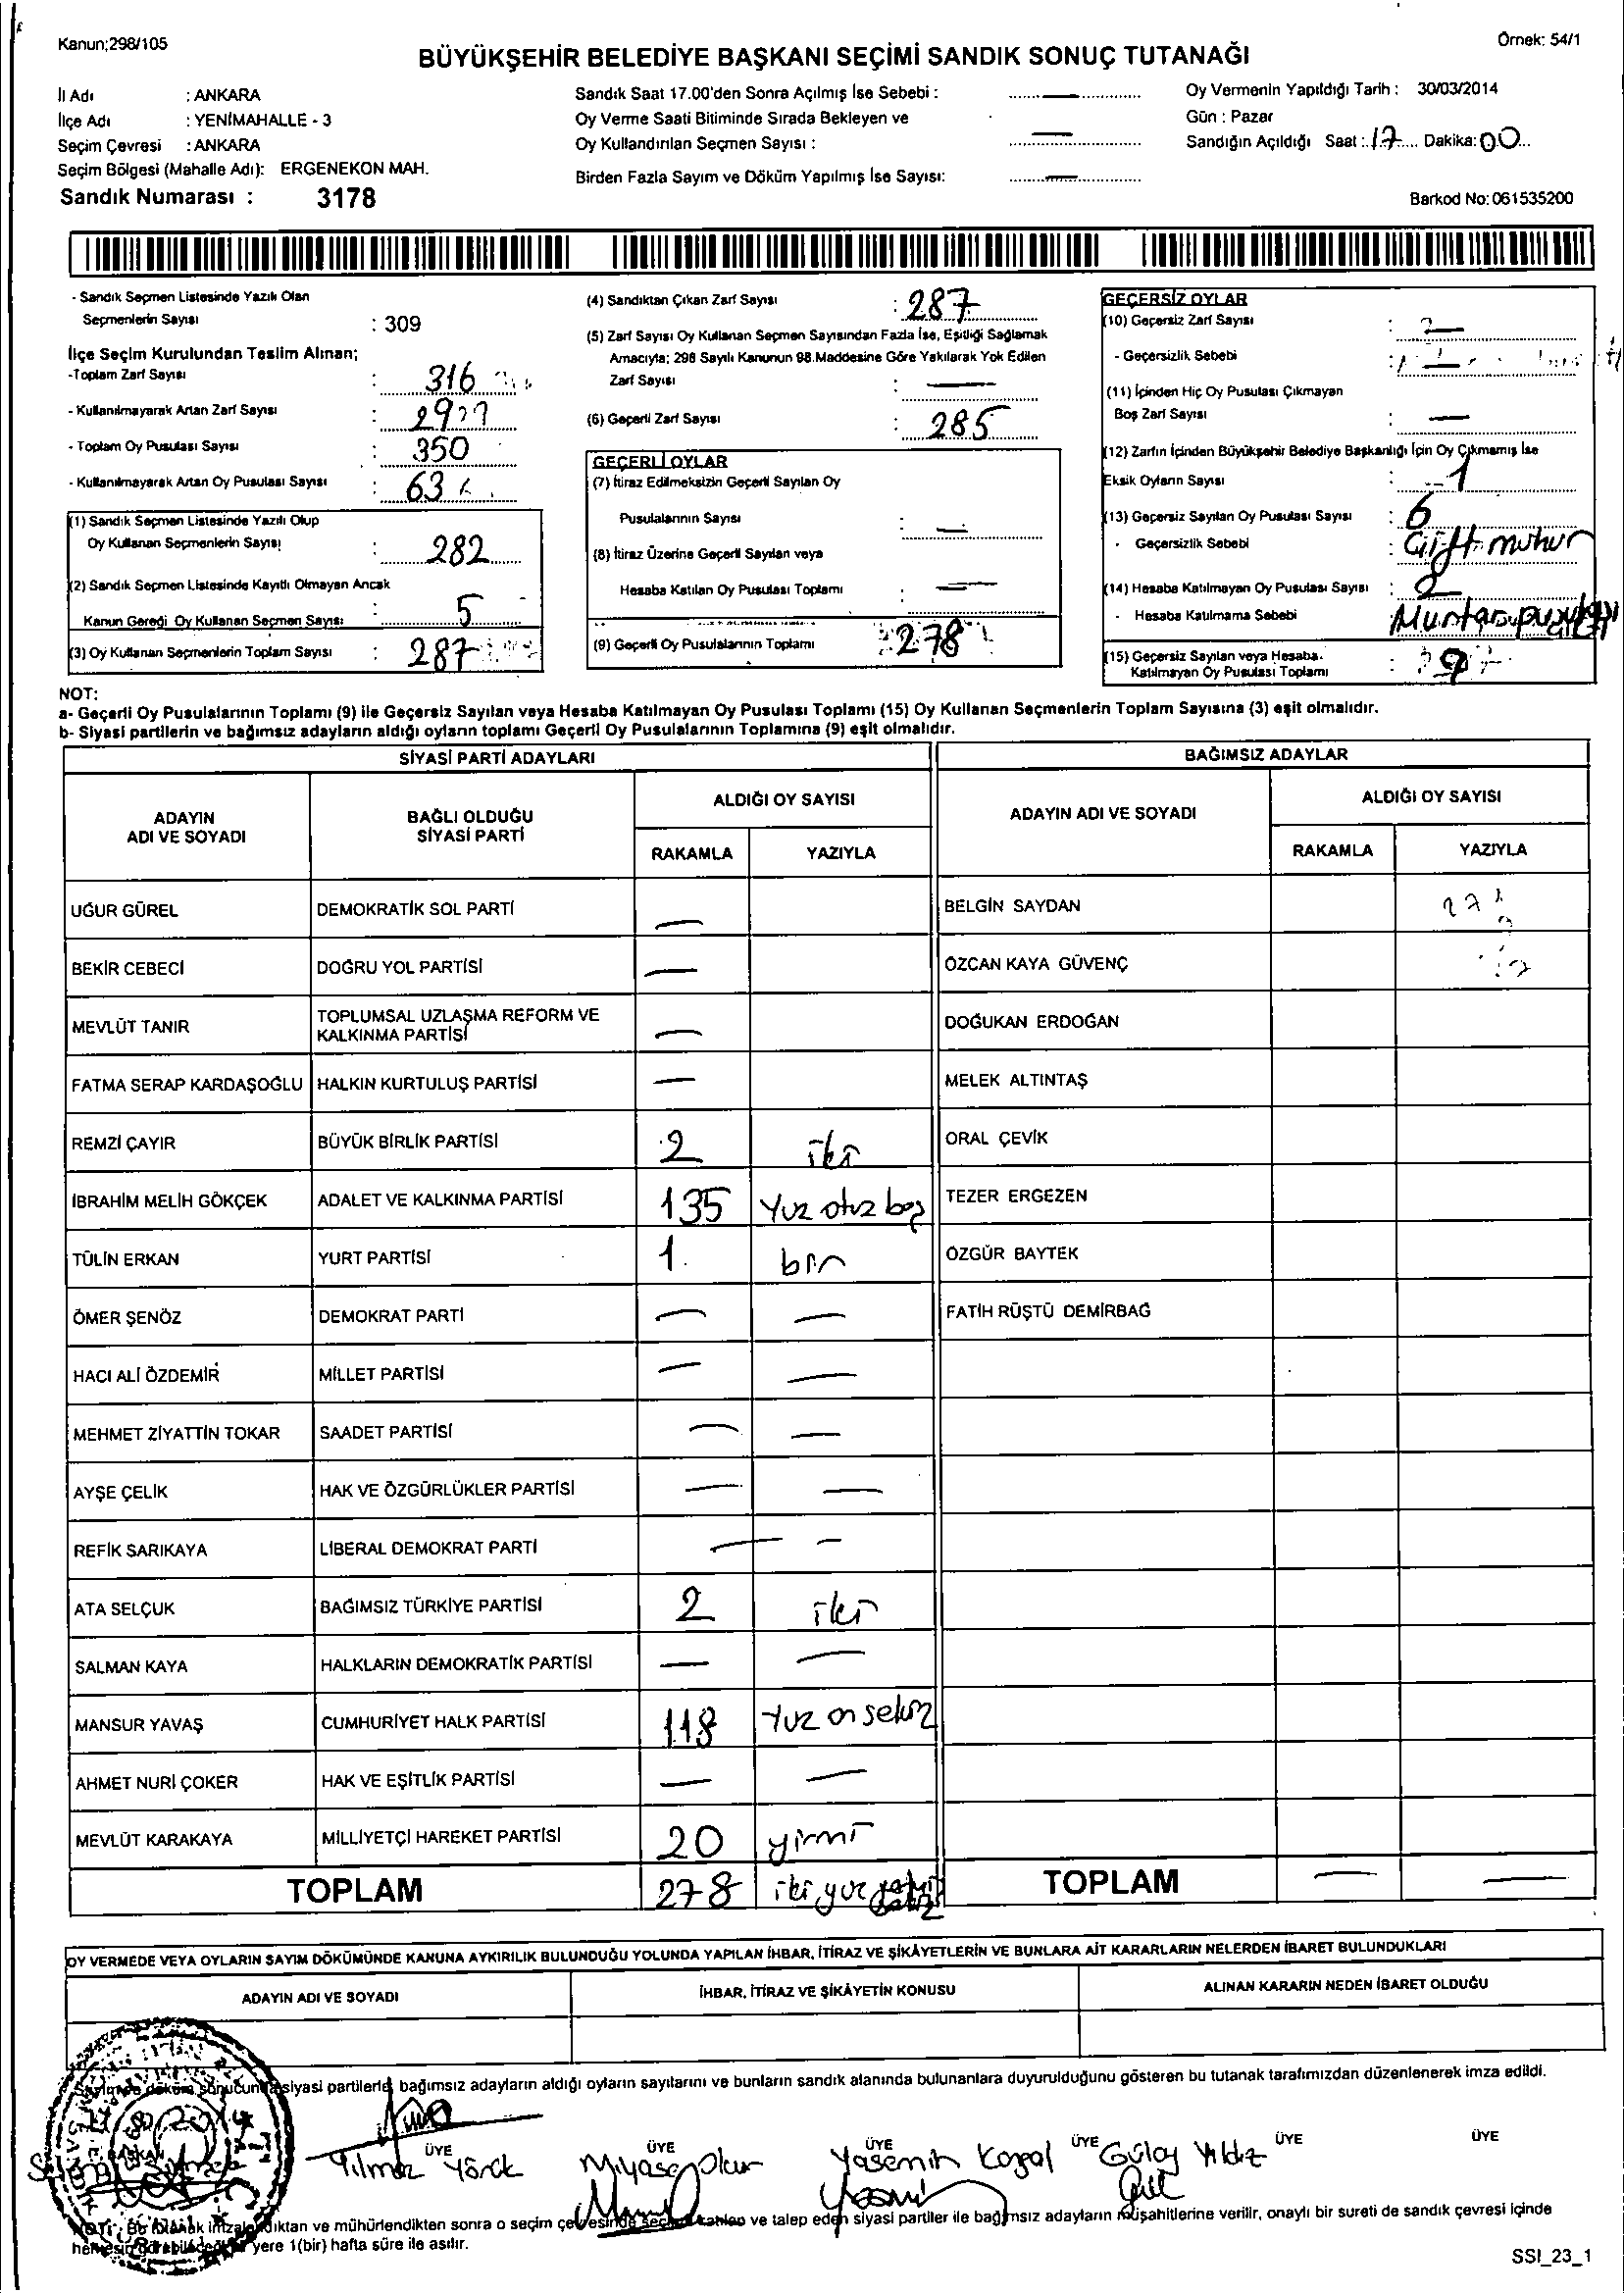 Kanun;298/105
Örnek: 54/1
BÜYÜKŞEHİR BELEDİYE BAŞKANI SEÇİMİ SANDIK SONUÇ TUTANAĞI
İl Adı : ANKARA
İlçe Adı : YENİMAHALLE - 3
Seçim Çevresi : ANKARA
Seçim Bölgesi (Mahalle Adı): ERGENEKON MAH.
Sandık Numarası : 3178
Sandık Saat 17.00'den Sonra Açılmış İse Sebebi : —
Oy Verme Saati Bitiminde Sırada Bekleyen ve
Oy Kullandırılan Seçmen Sayısı : —
Birden Fazla Sayım ve Döküm Yapılmış İse Sayısı: —
Oy Vermenin Yapıldığı Tarih : 30/03/2014
Gün : Pazar
Sandığın Açıldığı Saat : 17 Dakika: 00
Barkod No: 061535200
- Sandık Seçmen Listesinde Yazılı Olan
Seçmenlerin Sayısı : 309
İlçe Seçim Kurulundan Teslim Alınan;
-Toplam Zarf Sayısı : 316
- Kullanılmayarak Artan Zarf Sayısı :
- Toplam Oy Pusulası Sayısı : 350
- Kullanılmayarak Artan Oy Pusulası Sayısı : 63
(1) Sandık Seçmen Listesinde Yazılı Olup
Oy Kullanan Seçmenlerin Sayısı : 282
(2) Sandık Seçmen Listesinde Kayıtlı Olmayan Ancak
Kanun Gereği Oy Kullanan Seçmen Sayısı : 5
(3) Oy Kullanan Seçmenlerin Toplam Sayısı : 287
(4) Sandıktan Çıkan Zarf Sayısı : 287
(5) Zarf Sayısı Oy Kullanan Seçmen Sayısından Fazla İse, Eşitliği Sağlamak
Amacıyla; 298 Sayılı Kanunun 98.Maddesine Göre Yakılarak Yok Edilen
Zarf Sayısı : —
(6) Geçerli Zarf Sayısı : 285
GEÇERLİ OYLAR
(7) İtiraz Edilmeksizin Geçerli Sayılan Oy
Pusulalarının Sayısı : —
(8) İtiraz Üzerine Geçerli Sayılan veya
Hesaba Katılan Oy Pusulası Toplamı : —
(9) Geçerli Oy Pusulalarının Toplamı : 278
GEÇERSİZ OYLAR
(10) Geçersiz Zarf Sayısı : 2
- Geçersizlik Sebebi :
(11) İçinden Hiç Oy Pusulası Çıkmayan
Boş Zarf Sayısı : —
(12) Zarfın İçinden Büyükşehir Belediye Başkanlığı İçin Oy Çıkmamış İse
Eksik Oyların Sayısı : 1
(13) Geçersiz Sayılan Oy Pusulası Sayısı : 6
- Geçersizlik Sebebi : Çift muhur
(14) Hesaba Katılmayan Oy Pusulası Sayısı : 2
- Hesaba Katılmama Sebebi
(15) Geçersiz Sayılan veya Hesaba
Katılmayan Oy Pusulası Toplamı : 9
NOT:
a- Geçerli Oy Pusulalarının Toplamı (9) ile Geçersiz Sayılan veya Hesaba Katılmayan Oy Pusulası Toplamı (15) Oy Kullanan Seçmenlerin Toplam Sayısına (3) eşit olmalıdır.
b- Siyasi partilerin ve bağımsız adayların aldığı oyların toplamı Geçerli Oy Pusulalarının Toplamına (9) eşit olmalıdır.
SİYASİ PARTİ ADAYLARI
BAĞIMSIZ ADAYLAR
ADAYIN ADI VE SOYADI
BAĞLI OLDUĞU SİYASİ PARTİ
ALDIĞI OY SAYISI
RAKAMLA YAZIYLA
ADAYIN ADI VE SOYADI
ALDIĞI OY SAYISI
RAKAMLA YAZIYLA
UĞUR GÜREL DEMOKRATİK SOL PARTİ — BELGİN SAYDAN
BEKİR CEBECİ DOĞRU YOL PARTİSİ — ÖZCAN KAYA GÜVENÇ
MEVLÜT TANIR TOPLUMSAL UZLAŞMA REFORM VE KALKINMA PARTİSİ — DOĞUKAN ERDOĞAN
FATMA SERAP KARDAŞOĞLU HALKIN KURTULUŞ PARTİSİ — MELEK ALTINTAŞ
REMZİ ÇAYIR BÜYÜK BİRLİK PARTİSİ 2 iki ORAL ÇEVİK
İBRAHİM MELİH GÖKÇEK ADALET VE KALKINMA PARTİSİ 135 Yuz otuz beş TEZER ERGEZEN
TÜLİN ERKAN YURT PARTİSİ 1 bir ÖZGÜR BAYTEK
ÖMER ŞENÖZ DEMOKRAT PARTİ — — FATİH RÜŞTÜ DEMİRBAĞ
HACI ALİ ÖZDEMİR MİLLET PARTİSİ — —
MEHMET ZİYATTİN TOKAR SAADET PARTİSİ — —
AYŞE ÇELİK HAK VE ÖZGÜRLÜKLER PARTİSİ — —
REFİK SARIKAYA LİBERAL DEMOKRAT PARTİ — —
ATA SELÇUK BAĞIMSIZ TÜRKİYE PARTİSİ 2 iki
SALMAN KAYA HALKLARIN DEMOKRATİK PARTİSİ — —
MANSUR YAVAŞ CUMHURİYET HALK PARTİSİ 118 Yuz on sekiz
AHMET NURİ ÇOKER HAK VE EŞİTLİK PARTİSİ — —
MEVLÜT KARAKAYA MİLLİYETÇİ HAREKET PARTİSİ 20 yirmi
TOPLAM 278 iki yuz TOPLAM — —
OY VERMEDE VEYA OYLARIN SAYIM DÖKÜMÜNDE KANUNA AYKIRILIK BULUNDUĞU YOLUNDA YAPILAN İHBAR, İTİRAZ VE ŞİKÂYETLERİN VE BUNLARA AİT KARARLARIN NELERDEN İBARET BULUNDUKLARI
ADAYIN ADI VE SOYADI İHBAR, İTİRAZ VE ŞİKÂYETİN KONUSU ALINAN KARARIN NEDEN İBARET OLDUĞU
siyasi partilerle, bağımsız adayların aldığı oyların sayılarını ve bunların sandık alanında bulunanlara duyurulduğunu gösteren bu tutanak tarafımızdan düzenlenerek imza edildi.
ÜYE ÜYE ÜYE ÜYE ÜYE ÜYE
Yılmaz Yörük Miyase Okur Yasemin Gülay Yıldız
ve mühürlendikten sonra o seçim ve talep eden siyasi partiler ile bağımsız adayların müşahitlerine verilir, onaylı bir sureti de sandık çevresi içinde
yere 1(bir) hafta süre ile asılır.
SSI_23_1